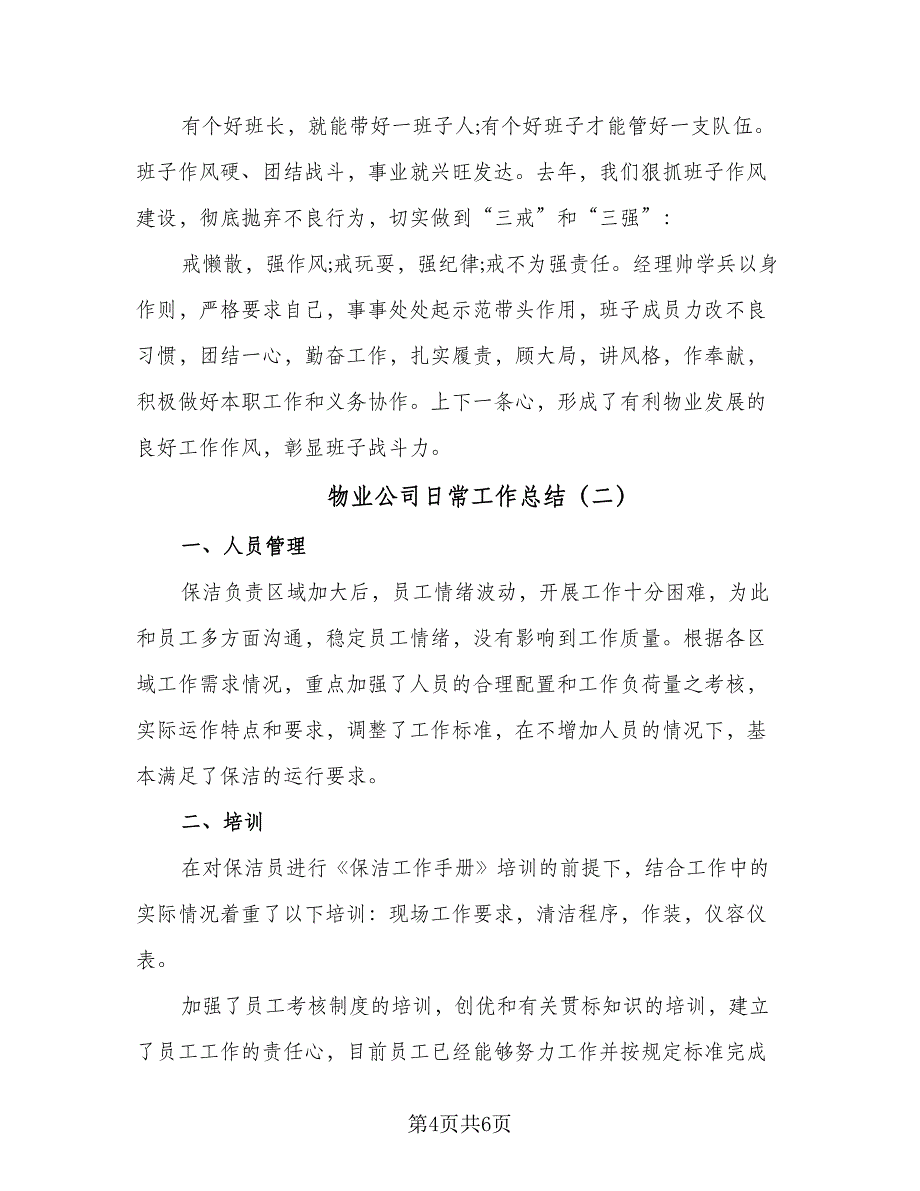 有个好班长，就能带好一班子人;有个好班子才能管好一支队伍。
班子作风硬、团结战斗，事业就兴旺发达。去年，我们狠抓班子作风
建设，彻底抛弃不良行为，切实做到“三戒”和“三强”：
戒懒散，强作风;戒玩耍，强纪律;戒不为强责任。经理帅学兵以身
作则，严格要求自己，事事处处起示范带头作用，班子成员力改不良
习惯，团结一心，勤奋工作，扎实履责，顾大局，讲风格，作奉献，
积极做好本职工作和义务协作。上下一条心，形成了有利物业发展的
良好工作作风，彰显班子战斗力。
物业公司日常工作总结（二）
一、人员管理
保洁负责区域加大后，员工情绪波动，开展工作十分困难，为此
和员工多方面沟通，稳定员工情绪，没有影响到工作质量。根据各区
域工作需求情况，重点加强了人员的合理配置和工作负荷量之考核，
实际运作特点和要求，调整了工作标准，在不增加人员的情况下，基
本满足了保洁的运行要求。
二、培训
在对保洁员进行《保洁工作手册》培训的前提下，结合工作中的
实际情况着重了以下培训：现场工作要求，清洁程序，作装，仪容仪
表。
加强了员工考核制度的培训，创优和有关贯标知识的培训，建立
了员工工作的责任心，目前员工已经能够努力工作并按规定标准完成
第4页共6页